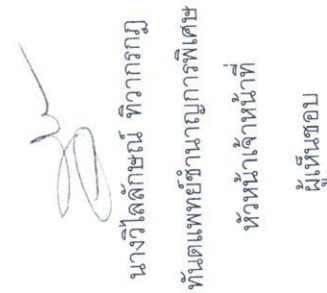 นางวิไลลักษณ์ ทิวากรกฎ
ทันตแพทย์ชำนาญการพิเศษ
หัวหน้าเจ้าหน้าที่
ผู้เห็นชอบ